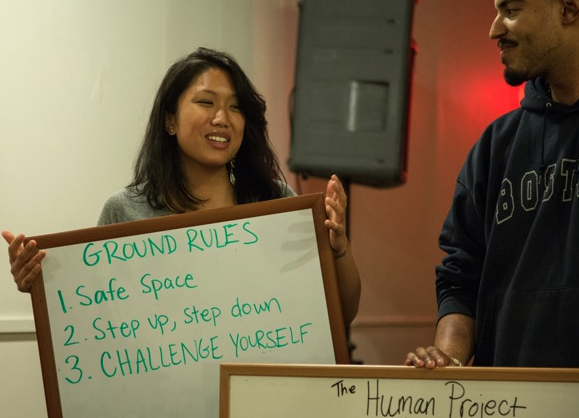 GROUND RULES
1. Safe Space
2. Step up, step down
3. CHALLENGE YOURSELF
The Human Project